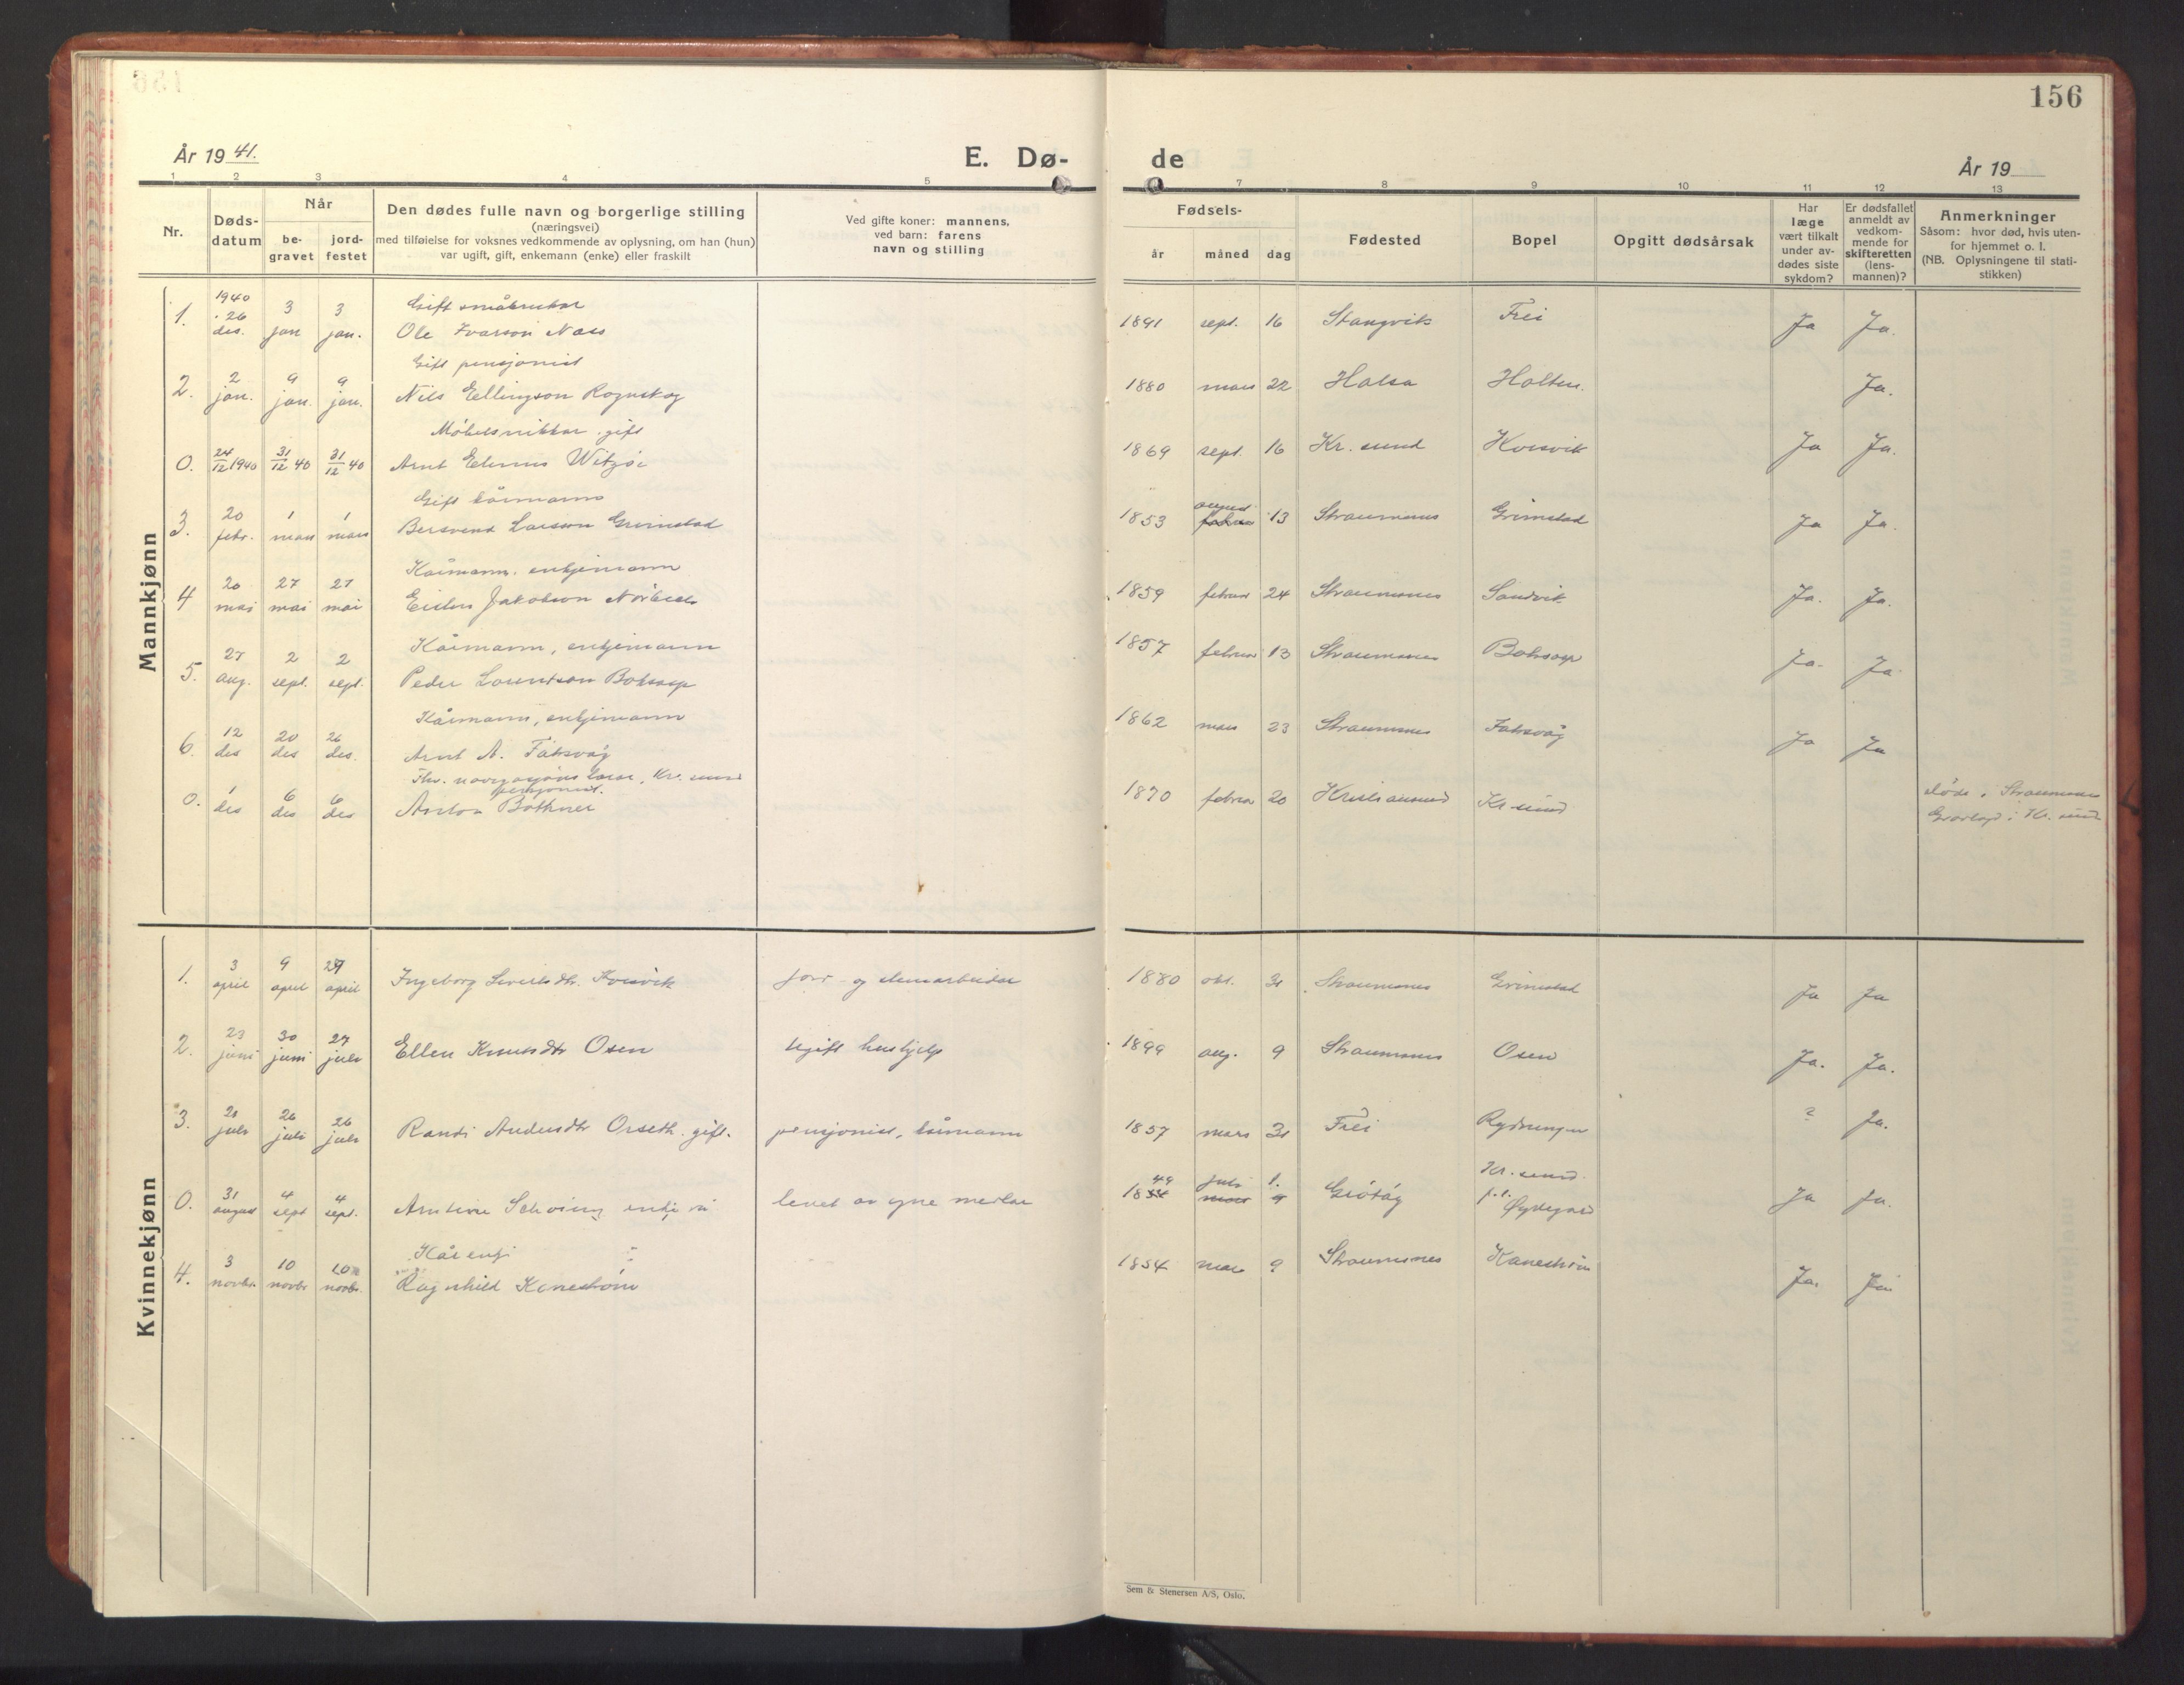 156
År 19 41.
E. Dø-
de
År 19
1 2 3 4 5 7 8 9 10 11 12 13
Nr.
Døds-
datum
Når
be-
gravet
jord-
festet
Den dødes fulle navn og borgerlige stilling
(næringsvei)
med tilføielse for voksnes vedkommende av oplysning, om han (hun)
var ugift, gift, enkemann (enke) eller fraskilt
Ved gifte koner: mannens,
ved barn: farens
navn og stilling
Fødsels-
år måned dag
Fødested
Bopel
Opgitt dødsårsak
Har
læge
vært tilkalt
under av-
dødes siste
sykdom?
Er dødsfallet
anmeldt av
vedkom-
mende for
skifteretten
(lens-
mannen)?
Anmerkninger
Såsom: hvor død, hvis uten-
for hjemmet o. l.
(NB. Oplysningene til stati-
stikken)
Mannkjønn
1940 Gift småbruker
1. 26 des. 3 jan 3 jan. Ole Ivarson Naes 1891 sept. 16 Stangvik Frei Ja Ja.
Gift pensjonist
2. 2 jan. 9 jan. 9 jan. Nils Ellingson Rognskog 1880 mars 22 Halsa Holten. Ja.
Møbelsnikkar gift
0. 24/12 1940 31/12 40 31/12 40 Arnt Witzøe 1869 sept. 16 Kr. sund Kvisvik Ja Ja.
Gift kårmann
3. 20 febr. 1 mars 1 mars Bersvend Larsson Grimstad 1853 august februar 13 Straumsnes Grimstad Ja Ja.
Kårmann. enkjemann
4 20 mai 27 mai 27 mai Jakobson 1859 februar 24 Straumsnes Sandvik Ja. Ja.
Kårmann, enkjemann
5. 27 aug. 2 sept. 2 sept. Peder Lorentson Boksasp 1857 februar 13 Straumsnes Boksasp Ja. Ja
Kårmann, enkjemann
6. 12 des 20 des 26 des. Arnt A. Fahsvåg 1862 mars 23 Straumsnes Fahsvåg Ja Ja
Fhv. navigasjons lærar, Kr. sund
pensjonist.
0. 1 des 6 des 6 des Anton Bothner 1870 februar 20 Kristiansund Kr sund døde i Straumsnes
Gravlagd i Kr. sund
Kvinnekjønn
1. 3 april 9 april 27 april Ingeborg Kvisvik jord- og stenarbeider 1880 okt. 31 Straumsnes Grimstad Ja Ja
2. 23 juni 30 juni 27 juli Ellen Knutsdtr Osen ugift hushjelp 1899 aug. 9 Straumsnes Osen Ja. Ja.
3. 21 juli 26 juli 26 juli Randi Andersdtr Orseth. gift. pensjonist, kårmann 1857 mars 31 Frei ? Ja.
0. 31 august 4 sept 4 sept. Schving enkje levet av egne midlar 1849 juli mars 1. 9 Kr. sund. Ja Ja.
p.t.
Kår enkje
4. 3 novbr. 10 novbr 10 novbr. Ragnhild Kanestrøm 1854 mars 9 Straumsnes Kanestrøm Ja. Ja
Sem & Stenersen A/S, Oslo.